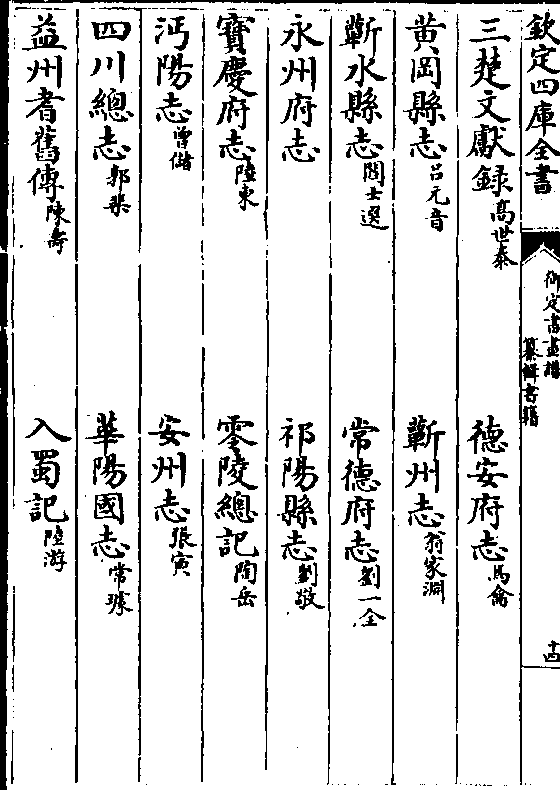 欽定四庫全書
御定書畫譜
纂輯書籍
十四
三楚文獻録高世泰 德安府志馬龠
黄岡縣志吕元音 蘄州志翁家淵
蘄水縣志閻士選 常德府志劉一全
永州府志 祁陽縣志劉敬
寳慶府志陸東 零陵總記陶岳
沔陽志曾儲 安州志張寅
四川總志郭棐 華陽國志常璩
益州耆舊傳陳壽 入蜀記陸游